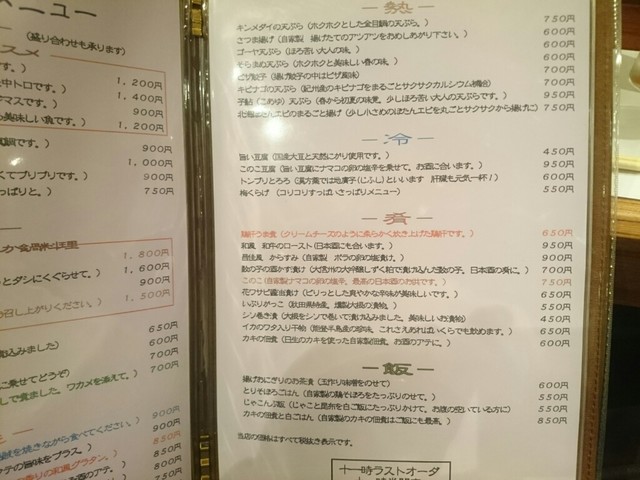 メニュー
(盛り合わせも承ります)
スメ
中トロです。) 1,200円
マスです。) 1,400円
900円
の美味しい貝です。) 1,200円
900円
1,000円
くてブリブリです。) 900円
っぱりと。) 750円
1,800円
とダシにくぐらせて。) 1,600円
900円
1,300円
召し上がりください。)
650円
込みました) 650円
700円
に乗せてどうぞ)
して食むました。ワカメを添えて。) 700円
900円
を焼きながら食べてください。) 900円
テの旨味をプラス。) 850円
の和風グラタン。) 850円
のアテ。) 900円
800円
— 熱 —
キンメダイの天ぷら (ホクホクとした金目鯛の天ぷら。) 750円
さつま揚げ (自家製 揚げたてのアツアツをおめしあがり下さい。) 600円
ゴーヤ天ぷら (ほろ苦い大人の味。) 600円
そらまめ天ぷら (ホクホクと美味しい春の味。) 600円
ピザ餃子 (揚げ餃子の中はピザ風味) 700円
キビナゴの天ぷら (紀州産のキビナゴをまるごとサクサクカルシウム補給) 700円
子鮎 (こあゆ) 天ぷら (春から初夏の味覚。少しほろ苦い大人の天ぷらです。) 950円
北海ぼたんエビのまるごと揚げ (少し小さめのぼたんエビを丸ごとサクサクから揚げに) 750円
— 冷 —
旨い豆腐 (国産大豆と天然にがり使用です。) 450円
このこ豆腐 (旨い豆腐にナマコの卵の塩辛を乗せて。お酒に合います。) 950円
トンブリとろろ (漢方薬では地膚子 (じふし) といいます 肝臓も元気一杯!) 600円
梅くらげ (コリコリすっぱいさっぱりメニュー) 550円
— 肴 —
鶏肝うま煮 (クリームチーズのように柔らかく炊き上げた鶏肝です。) 650円
和風 和牛のロースト (日本酒にも合います。) 950円
からすみ (自家製 ボラの卵の塩漬け。) 900円
鮫の子の酒かす漬け (大信州の大吟醸しずく粕で漬け込んだ鮫の子。日本酒の肴に。) 700円
このこ (自家製ナマコの卵の塩辛。最高の日本酒のお供です。) 750円
花ワサビ醤油漬け (ピリっとした爽やかな辛味が美味しいです。) 650円
いぶりがっこ (秋田県特産。燻製大根の漬物。) 550円
シソ巻き漬 (大根をシソで巻いて漬け込みました。美味しいお漬物) 450円
イカのワタ入り干物 (能登半島産の珍味 これさえあればいくらでも飲めます。) 650円
カキの佃煮 (日生のカキを使った自家製佃煮。お酒のアテに。) 600円
— 飯 —
揚げおにぎりのお茶漬 (玉作り味噌をのせて) 600円
とりそぼろごはん (自家製の鶏そぼろをたっぷりのせて。) 550円
じゃこんぶ飯 (じゃこと昆布を白ご飯にたっぷりかけて。お腹の空いている方に) 550円
カキの佃煮と白ごはん (自家製のカキの佃煮はご飯にも最高。) 850円
当店の価格はすべて税抜き表示です。
十一時ラストオーダ